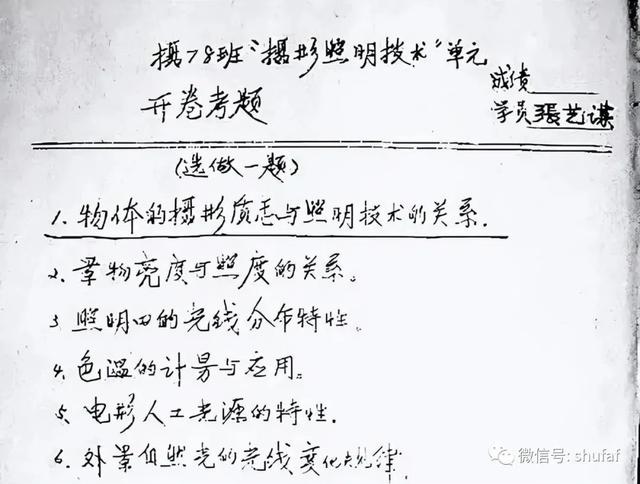 摄78班“摄影照明技术”单元
成绩
开卷考题
学员 張艺谋
(选做一题)
1. 物体的摄影质态与照明技术的关系.
2. 景物亮度与照度的关系。
3. 照明田的光线分布特性。
4. 色温的计量与应用。
5. 电影人工光源的特性.
6. 外景自然光的光线变化规律
微信号: shufaf